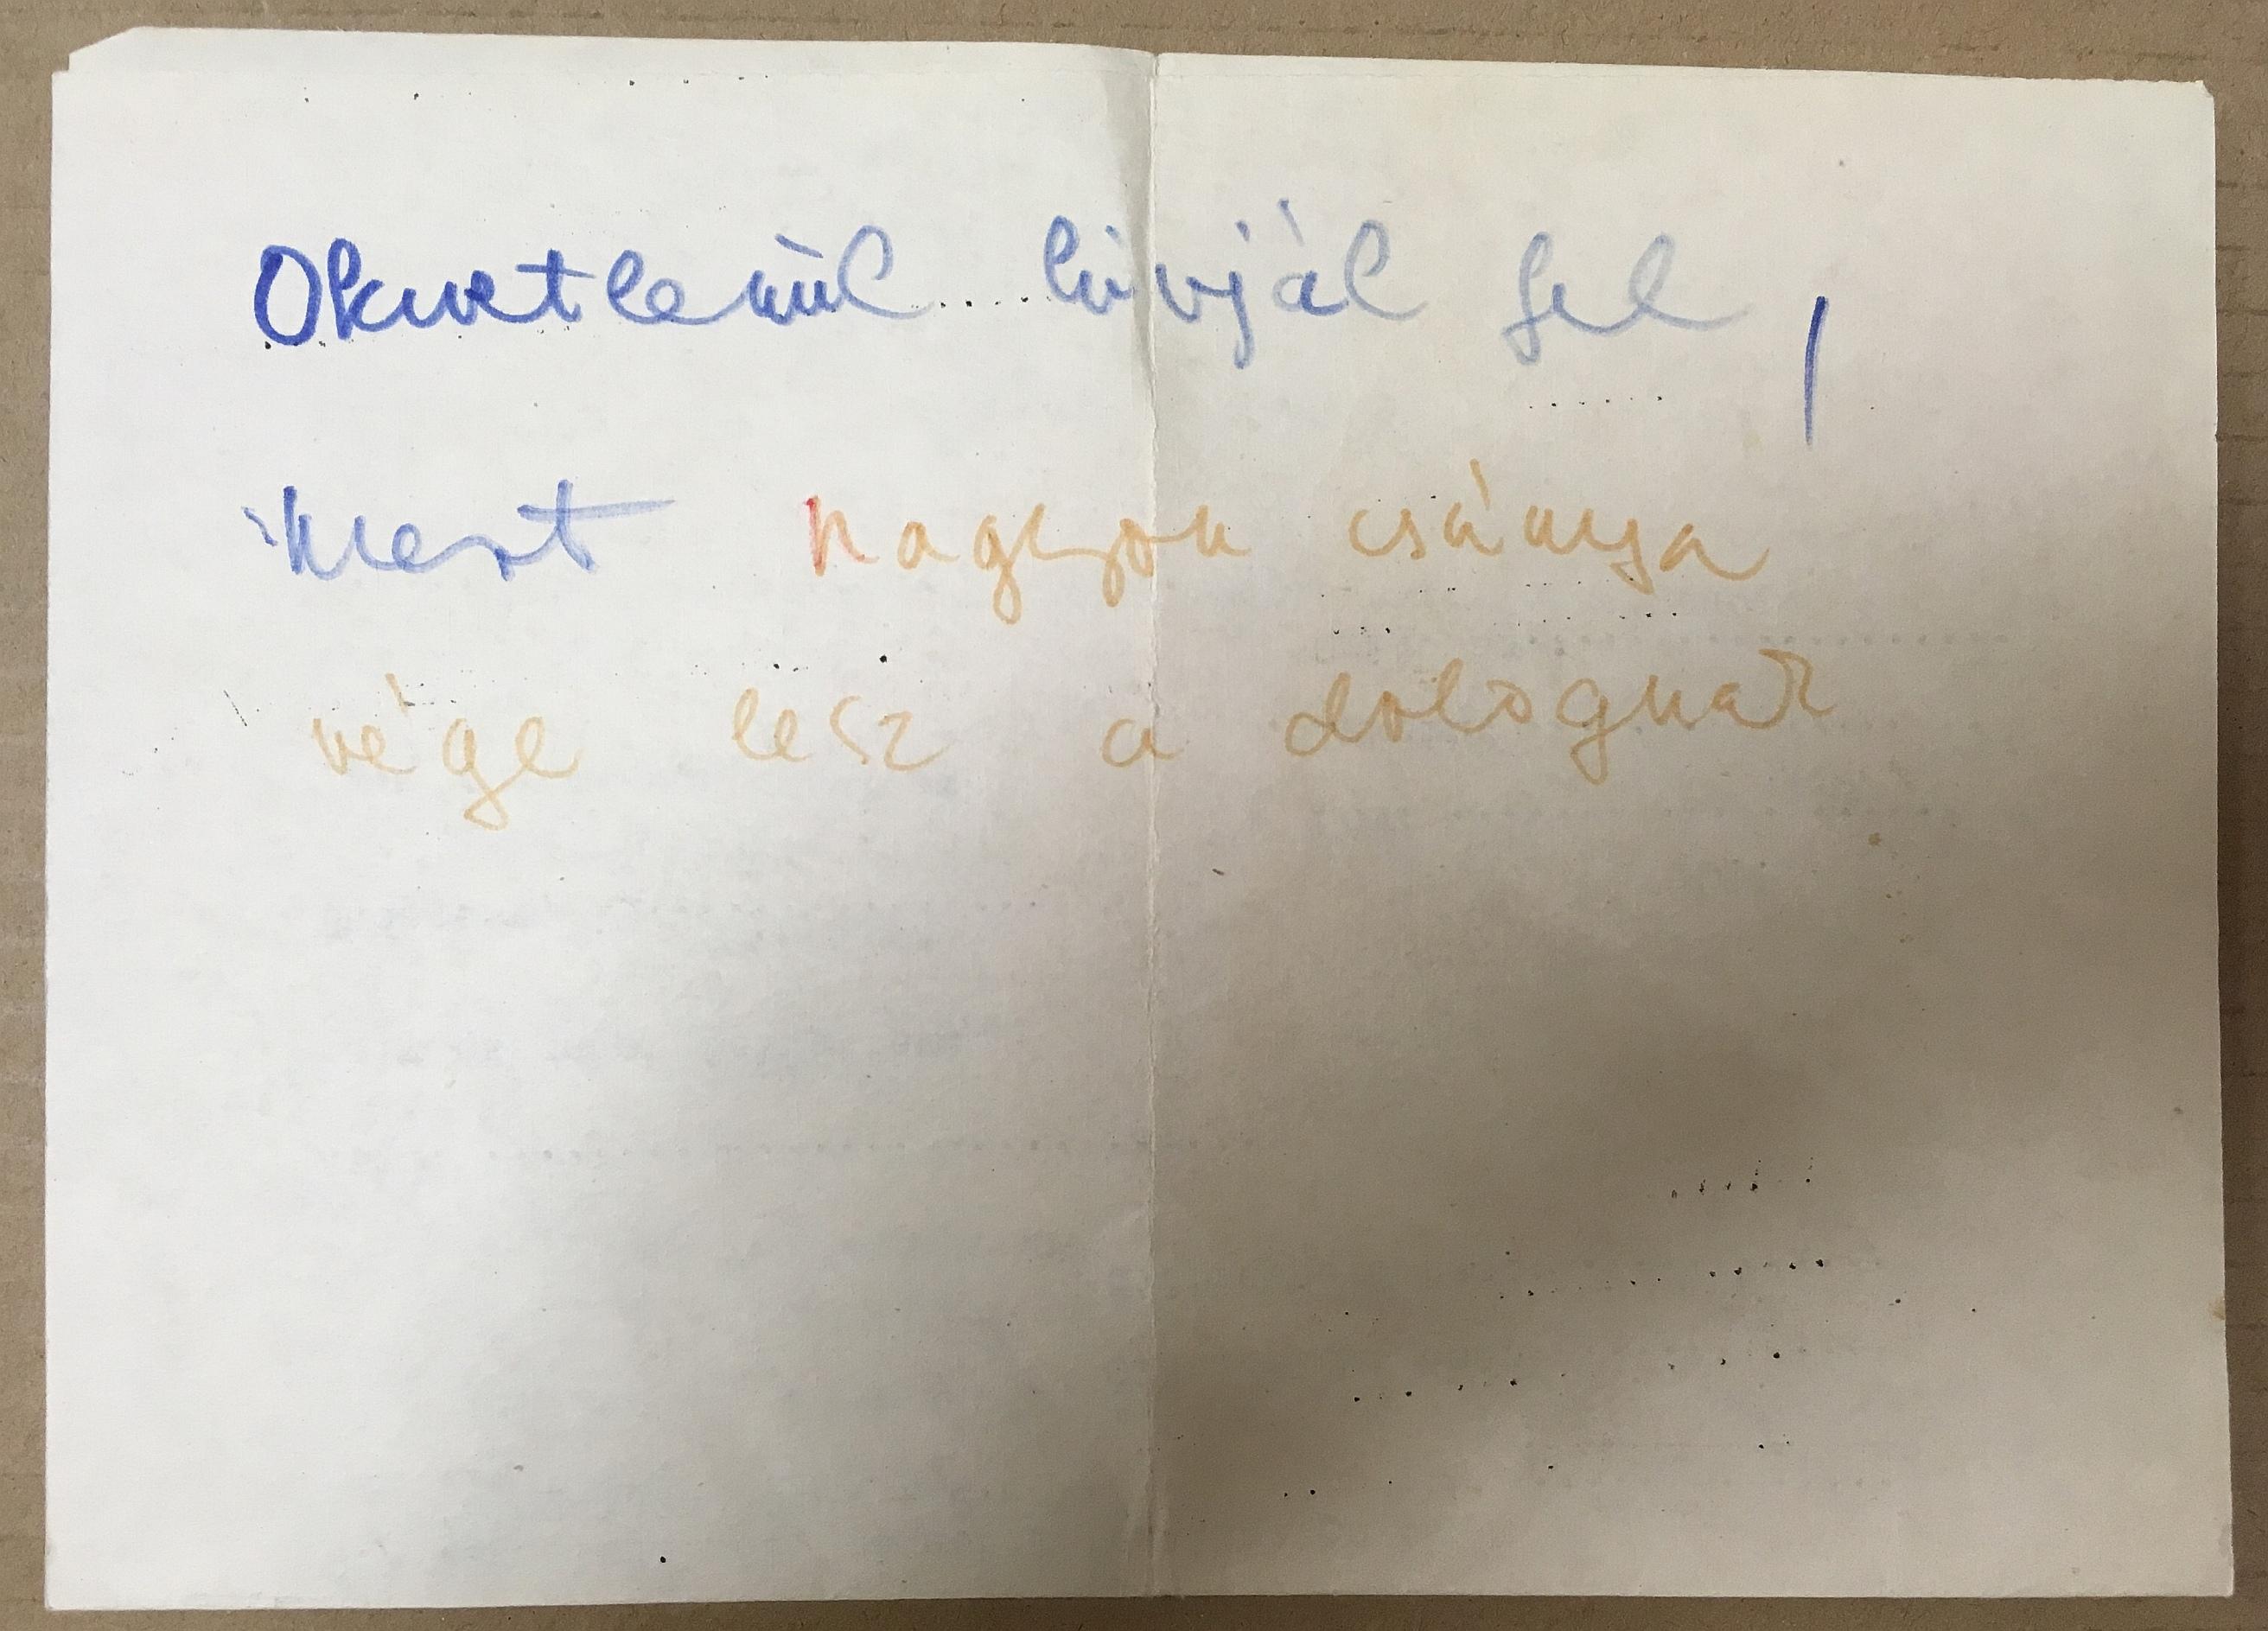 Okvetlenül hívjál fel,
mert nagyon csúnya
vége lesz a dolognak